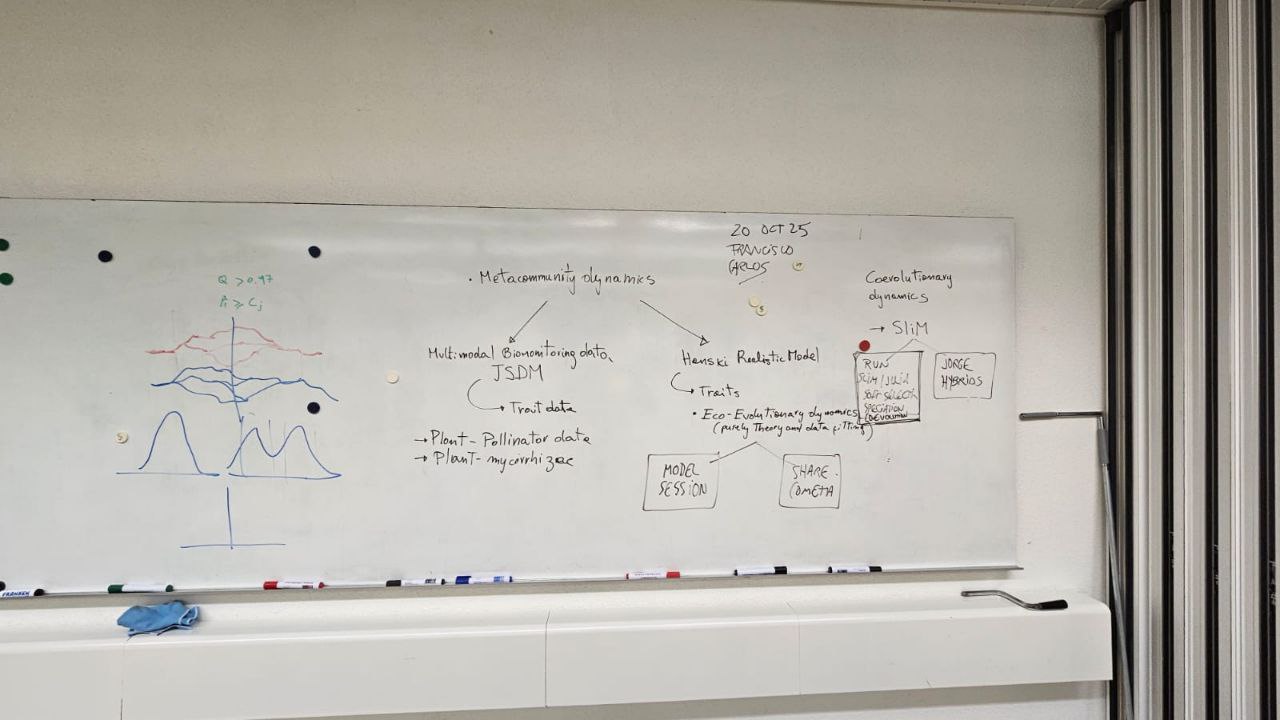 Q > 0.97
20 OCT 25
FRANCISCO
CARLOS
• Metacommunity dynamics
Multimodal Biomonitoring data
JSDM
→ Trait data
→ Plant-Pollinator data
→ Plant-mycorrhizae
Hanski Realistic Model
→ Traits
• Eco-Evolutionary dynamics
(purely Theory and data fitting)
MODEL
SESSION
SHARE
COMETA
Coevolutionary
dynamics
→ SLiM
RUN
SLIM / JULIA
SOFT SELECT
SPECIATION
COEVOLUTION
JORGE
HYBRIDS